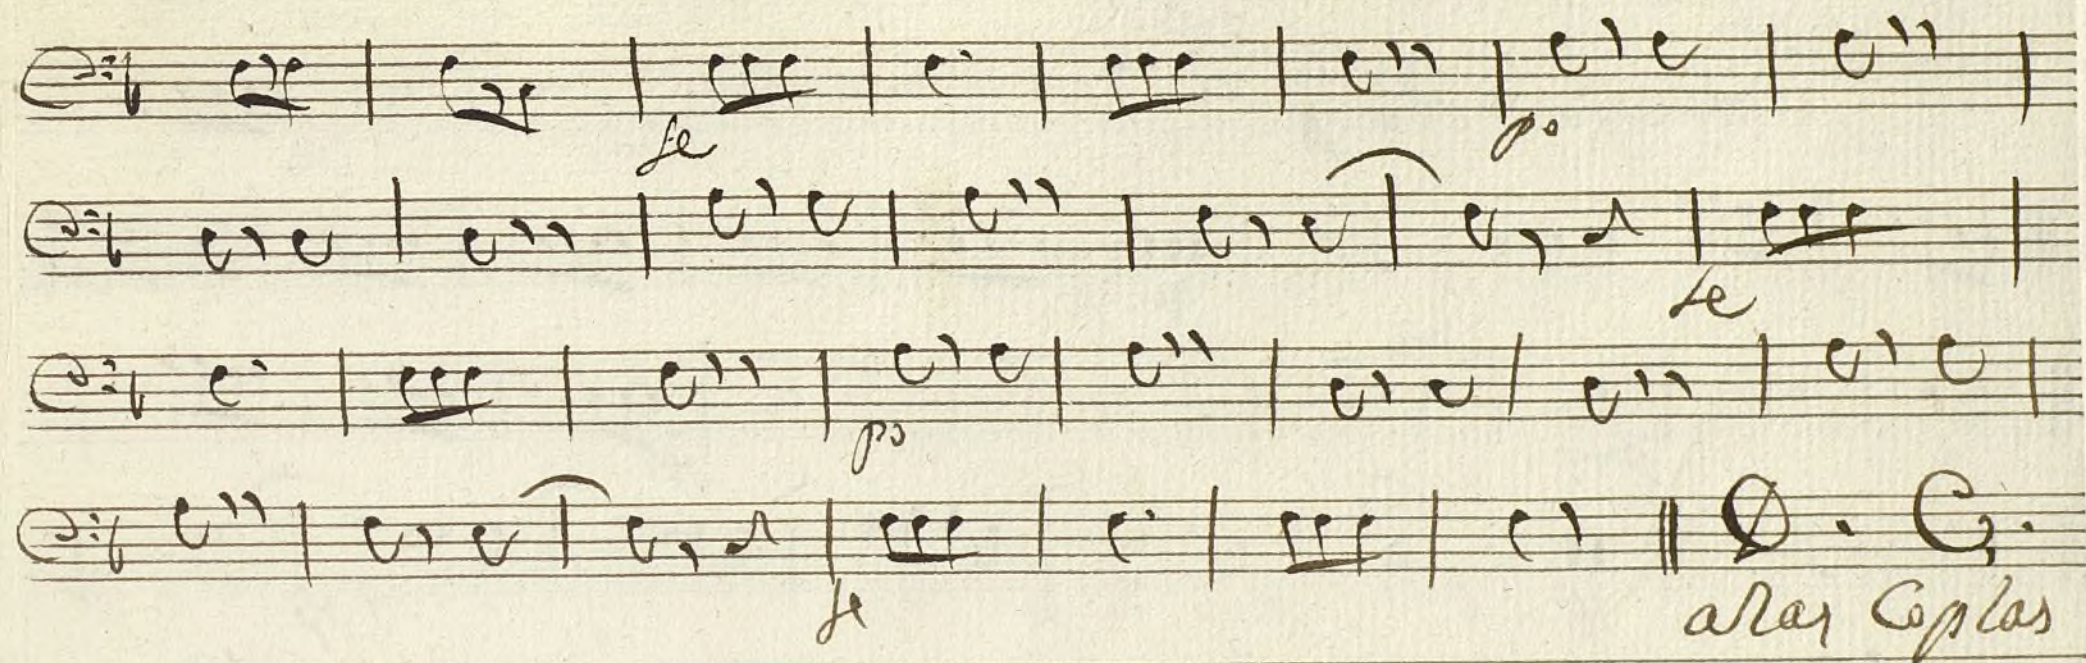 fe po
fe
po
fe D. C.
alas Coplas